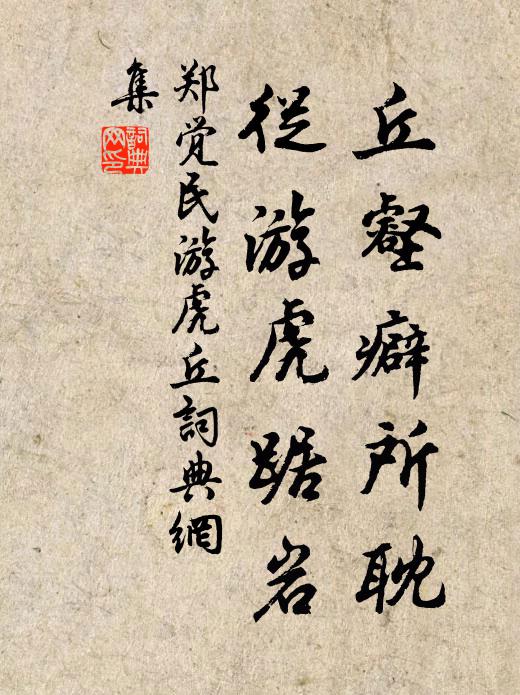 丘壑癖所耽
從游虎踞岩
郑觉民游虎丘詞典網
集
詞典
网印